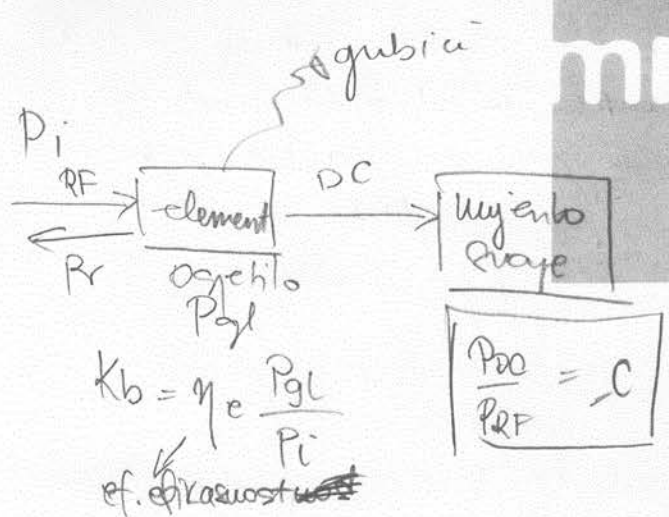 gubici
Pi
RF
element
DC
mjerilo
snage
Pr
osjetilo
Pgl
Kb = ηe Pgl / Pi
PDC / PRF = C
ef. efikasnost